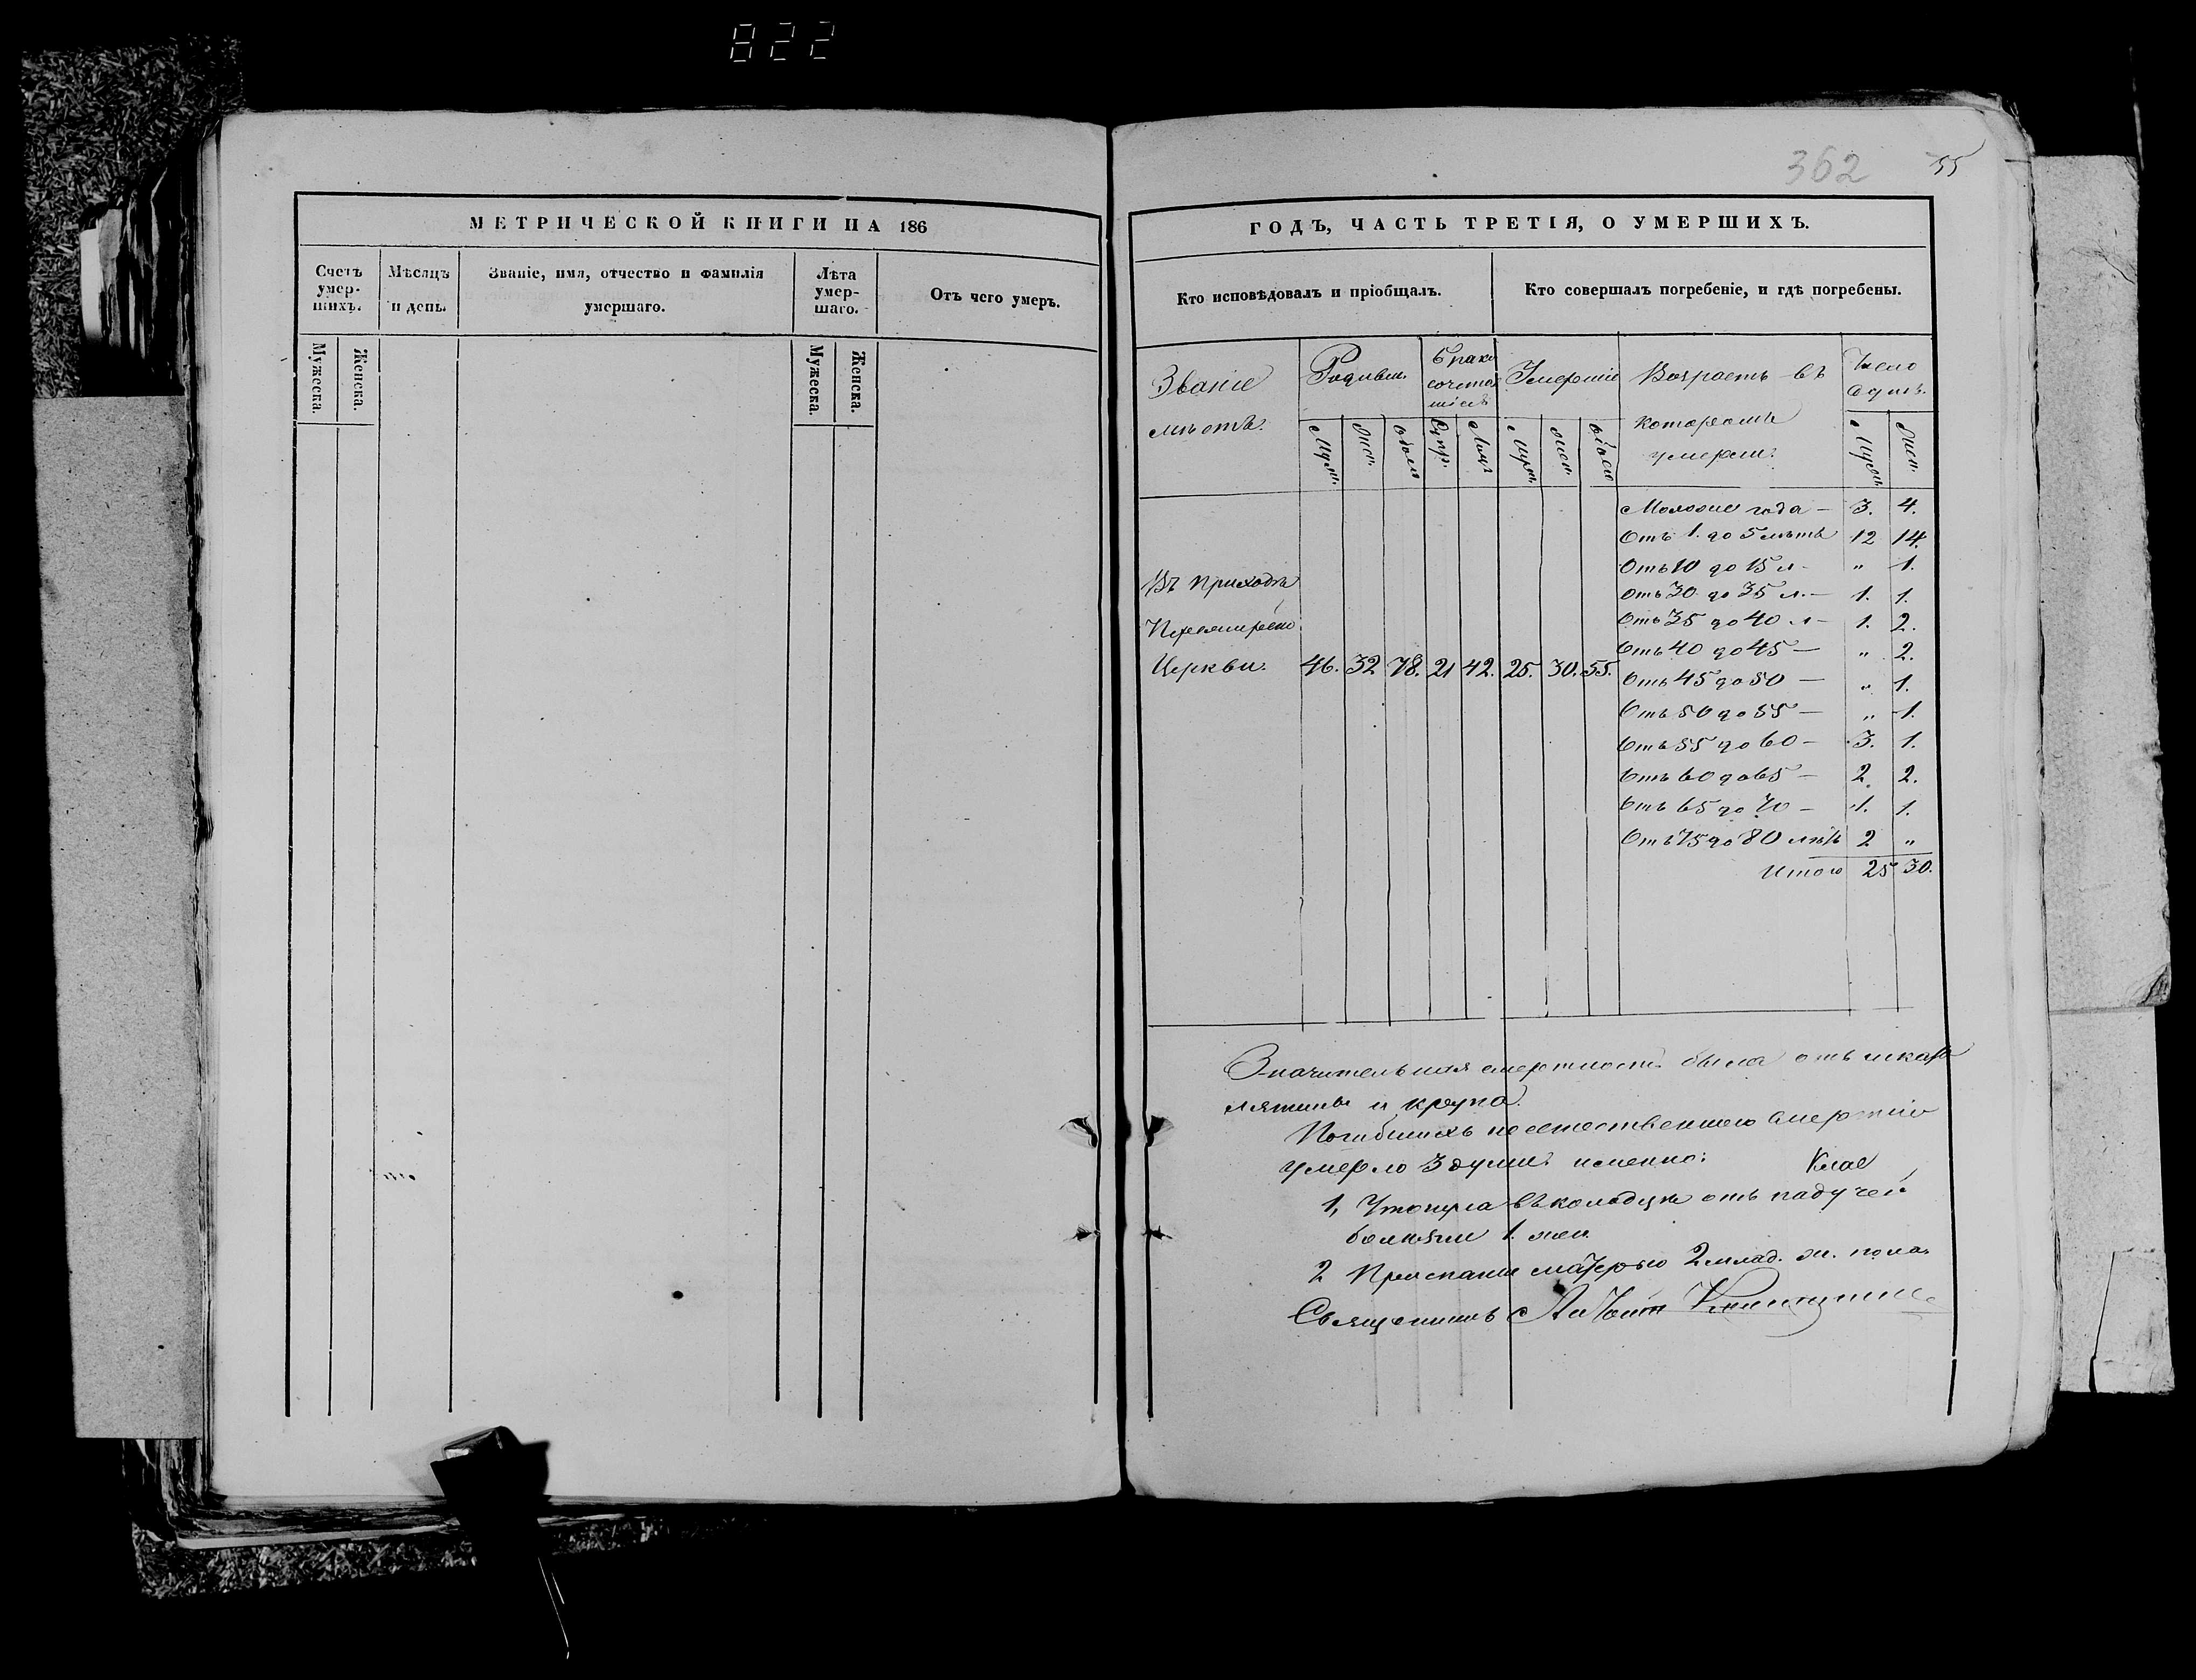 822
362
55
МЕТРИЧЕСКОЙ КНИГИ НА 186
Счетъ умер-шихъ.
Мѣсяцъ и день.
Званіе, имя, отчество и фамилія умершаго.
Лѣта умер-шаго.
Отъ чего умеръ.
Мужеска.
Женска.
Мужеска.
Женска.
ГОДЪ, ЧАСТЬ ТРЕТІЯ, О УМЕРШИХЪ.
Кто исповѣдовалъ и пріобщалъ.
Кто совершалъ погребеніе, и гдѣ погребены.
Званіе мѣстъ.
Умершіе
Возрастъ въ
которомъ
умерли.
Число
душъ.
Муж. Жен.
Отъ 1. до 5 лѣтъ 12 14.
Отъ 10 до 15 л. „ 1.
Отъ 30 до 35 л. — 1. 1.
Отъ 35 до 40 л — 1. 2.
Отъ 40 до 45 — „ 2.
Отъ 45 до 50 — „ 1.
Отъ 50 до 55 — „ 1.
Отъ 55 до 60 — 3. 1.
Отъ 60 до 65 — 2. 2.
Отъ 65 до 70 — 1. 1.
Отъ 75 до 80 лѣтъ 2 „
Итого 25 30.
Въ приходѣ
Церкви. 46. 32 78. 21 42. 25. 30. 55.
Значительная смертность была отъ скар
лятины и крупа.
умерло 3 души именно:
1, Утонула въ колодцѣ отъ падучей
болѣзни 1. жен.
2 матерью 2 млад. м. пола.
Священникъ